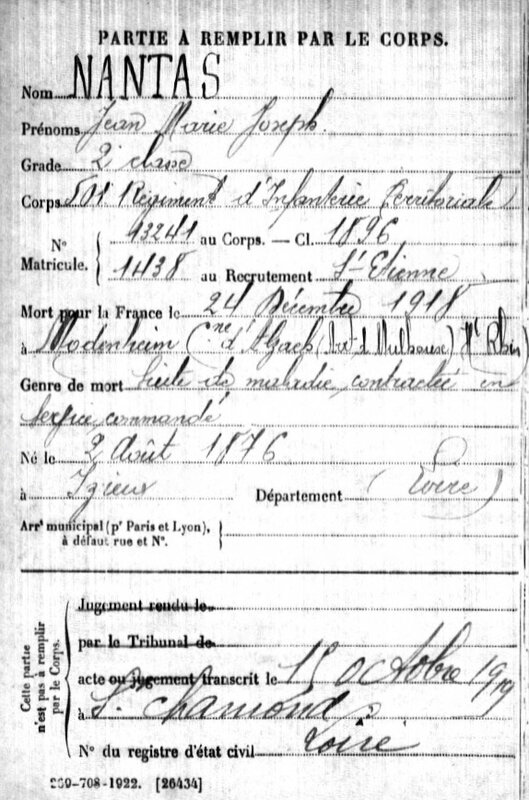 PARTIE A REMPLIR PAR LE CORPS.
Nom NANTAS
Prénoms Jean Marie Joseph
Grade 2e classe
Corps 501e Régiment d'Infanterie Territoriale
N° Matricule. { 13241 au Corps. — Cl. 1896
1438 au Recrutement St-Etienne
Mort pour la France le 24 Décembre 1918
à Modenheim (Cne d'Alsace (Art d Mulhouse) Ht Rhin)
Genre de mort Suite de maladie contractée en
service commandé
Né le 2 Août 1876
à Izieux Département (Loire)
Arrt municipal (pr Paris et Lyon),
à défaut rue et N°.
Cette partie n'est pas à remplir par le Corps.
Jugement rendu le
par le Tribunal de
acte ou jugement transcrit le 15 Octobre 1919
à St Chamond
N° du registre d'état civil Loire
269-708-1922. [26434]